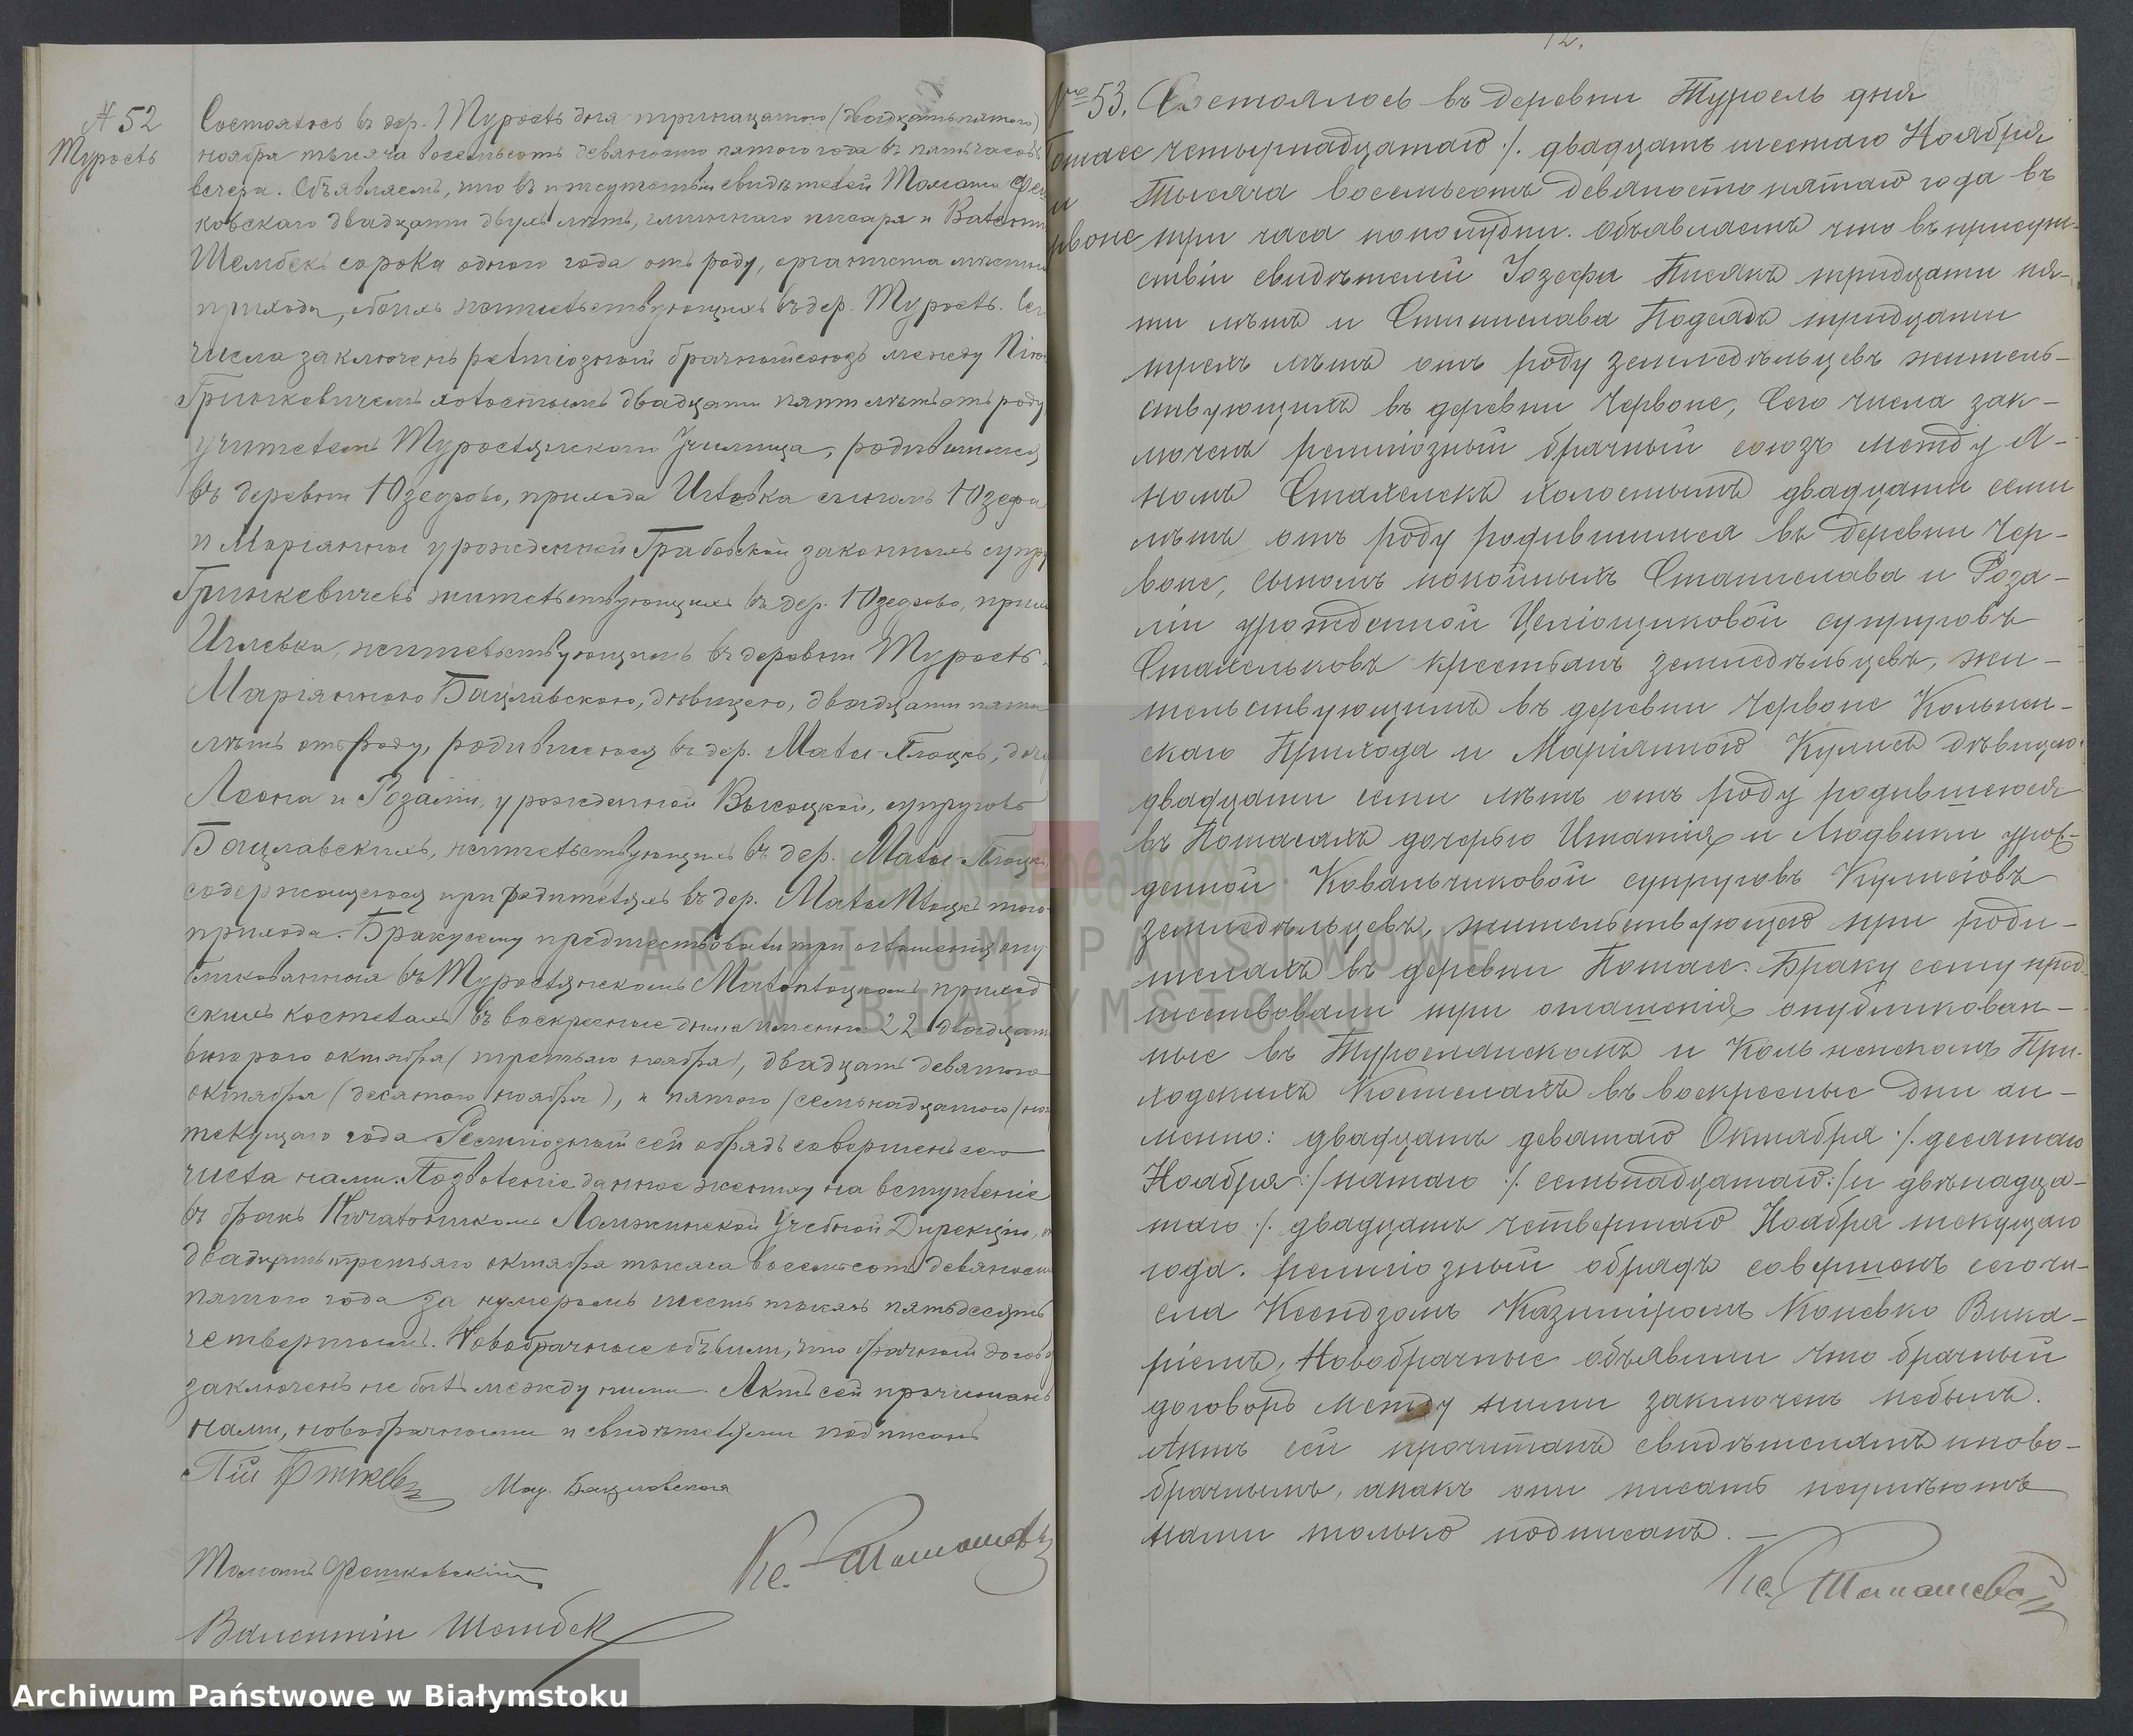 № 52
Турость
Состоялось въ дер. Турость дня тринацатаго (двадцать пятаго)
ноября тысяча восемьсотъ девяносто пятаго года въ пять часовъ
вечера. Объявляемъ, что въ присутствіи свидѣтелей Томаша
ковскаго двадцати двухъ лѣтъ, гминнаго писаря и Валентія
Шембекъ сорока одного года отъ роду, органиста мѣстнаго
прихода, обоихъ жительствующихъ въ дер. Турость. Сего
числа заключенъ религіозный брачный союзъ между Піемъ
Гринкевичемъ холостымъ двадцати пяти лѣтъ отъ роду
учителемъ Туростьцкаго Училища, родившимся
въ деревни Юзефово, прихода Иглювка сыномъ Юзефа
и Маріянны урожденной Грабовской законныхъ супру
Гринкевичевъ жительствующихъ въ дер. Юзефово, прихо
Иглевка, жительствующимъ въ деревни Турость,
Маріянною Бацлавскою, дѣвицею, двадцати пяти
лѣтъ отъ роду, родившеюся въ дер. Малы-Плоцкъ, дочь
Леона и Розаліи, урожденной Высоцкой, супруговъ
Бацлавскихъ, жительствующихъ въ дер. Малы-Плоцкъ
содержащеюся при родителяхъ въ дер. Малы Плоцкъ того
прихода. Браку сему предшествовали три оглашенія опу
бликованныя въ Туростьянскомъ и Малоплоцкомъ приход
скихъ костелахъ въ воскресные дни а именно 22 двадцать
втораго октября (третьяго ноября), двадцать девятаго
октября (десятаго ноября), и пятаго (семьнадцатаго) ноя
текущаго года. Религіозный сей обрядъ совершенъ сего
числа нами. Позволеніе данное жениху на вступленіе
въ бракъ Начальникомъ Ломжинской Учебной Дирекціи,
двадцать третьяго октября тысяча восемьсотъ девяносто
пятаго года за нумеромъ шесть тысячъ пятьдесятъ
четвертымъ. Новобрачные объявили, что брачный договоръ
заключенъ не былъ между ними. Актъ сей прочитанъ
нами, новобрачными и свидѣтелями подписанъ
Пій Гринкевичъ Мар. Бацлавская
Томашъ Фешковскій
Кс. Томашевъ
Валентій Шембек
12.
№ 53.
Потасе
и
Червоне
Состоялось въ деревни Туросль дня
четырнадцатаго /. двадцать шестаго Ноября
Тысяча восемьсотъ девяносто пятаго года въ
три часа пополудни. Объявляемъ что въ присут-
ствіи свидѣтелей Іозефа Писякъ тридцати пя-
ти лѣтъ и Станислава Подсядъ тридцати
трехъ лѣтъ отъ роду земледѣльцевъ житель-
ствующихъ въ деревни Червоне, Сего числа зак-
люченъ религіозный брачный союзъ между Я-
номъ Стахелекъ холостымъ двадцати семи
лѣтъ отъ роду родившимся въ Деревни Чер-
воне, сыномъ покойныхъ Станислава и Роза-
ліи урожденной Целюциковой супруговъ
Стахельковъ крестьянъ земледѣльцевъ, жи-
тельствующимъ въ деревни Червоне Кольнен-
скаго Прихода и Маріянною Кулисъ дѣвицею
двадцати семи лѣтъ отъ роду родившеюся
въ Потасахъ дочерью Игнатія и Людвики урож-
денной Ковальчиковой супруговъ Кулисіовъ
земледѣльцевъ, жительствующей при роди-
теляхъ въ деревни Потасе. Браку сему пред-
шествовали три оглашенія опубликован-
ные въ Турослянскомъ и Кольненскомъ При-
ходскихъ Костелахъ въ воскресные дни аи-
менно: двадцать девятаго Октября /. десятаго
Ноября :/ пятаго /. семьнадцатаго :/ и двѣнадца-
таго /. двадцать четвертаго Ноября текущаго
года. религіозный обрядъ совершонъ сего чи-
сла Ксендзомъ Казиміромъ Коневко Вика-
ріемъ, Новобрачные объявили что брачный
договоръ между ними заключенъ небылъ.
Актъ сей прочитанъ свидѣтелямъ иново-
брачнымъ, анакъ они писать неумѣютъ
нами только подписанъ. —
Кс. Томашевъ
ARCHIWUM PAŃSTWOWE
W BIAŁYMSTOKU
Archiwum Państwowe w Białymstoku